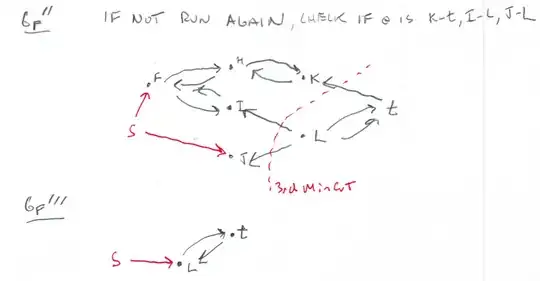 GF'' IF NOT RUN AGAIN, CHECK IF e IS K-t, I-L, J-L
H
F
K
I
t
S
L
J
3rd Min CuT
GF'''
t
S
L